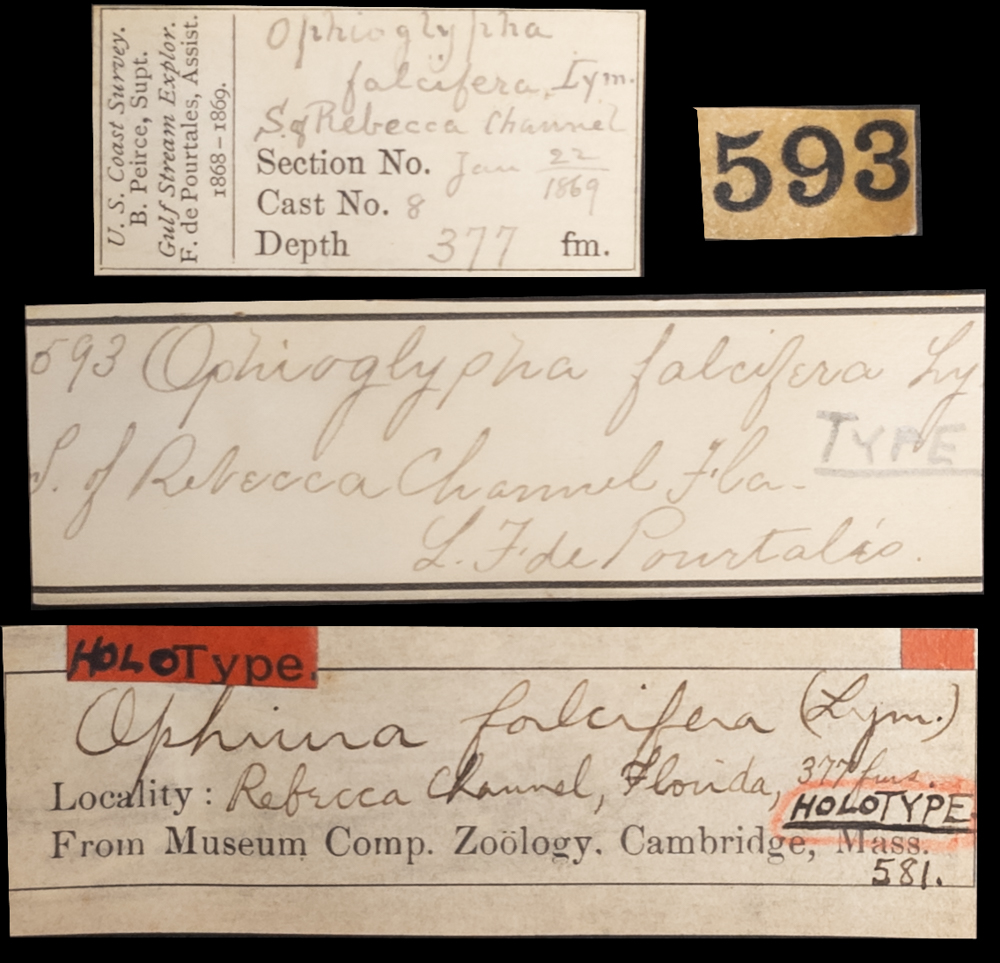 U. S. Coast Survey.
B. Peirce, Supt.
Gulf Stream Explor.
F. de Pourtales, Assist.
1868–1869.
Ophioglypha
falcifera, Lym.
S. of Rebecca Channel
Section No. Jan 22/1869
Cast No. 8
Depth 377 fm.
593
593 Ophioglypha falcifera Ly
S. of Rebecca Channel Fla-
TYPE
L. F. de Pourtalés.
HOLOType.
Ophiura falcifera (Lym.)
Locality: Rebecca Channel, Florida, 377 fms.
HOLOTYPE
From Museum Comp. Zoölogy, Cambridge, Mass.
581.